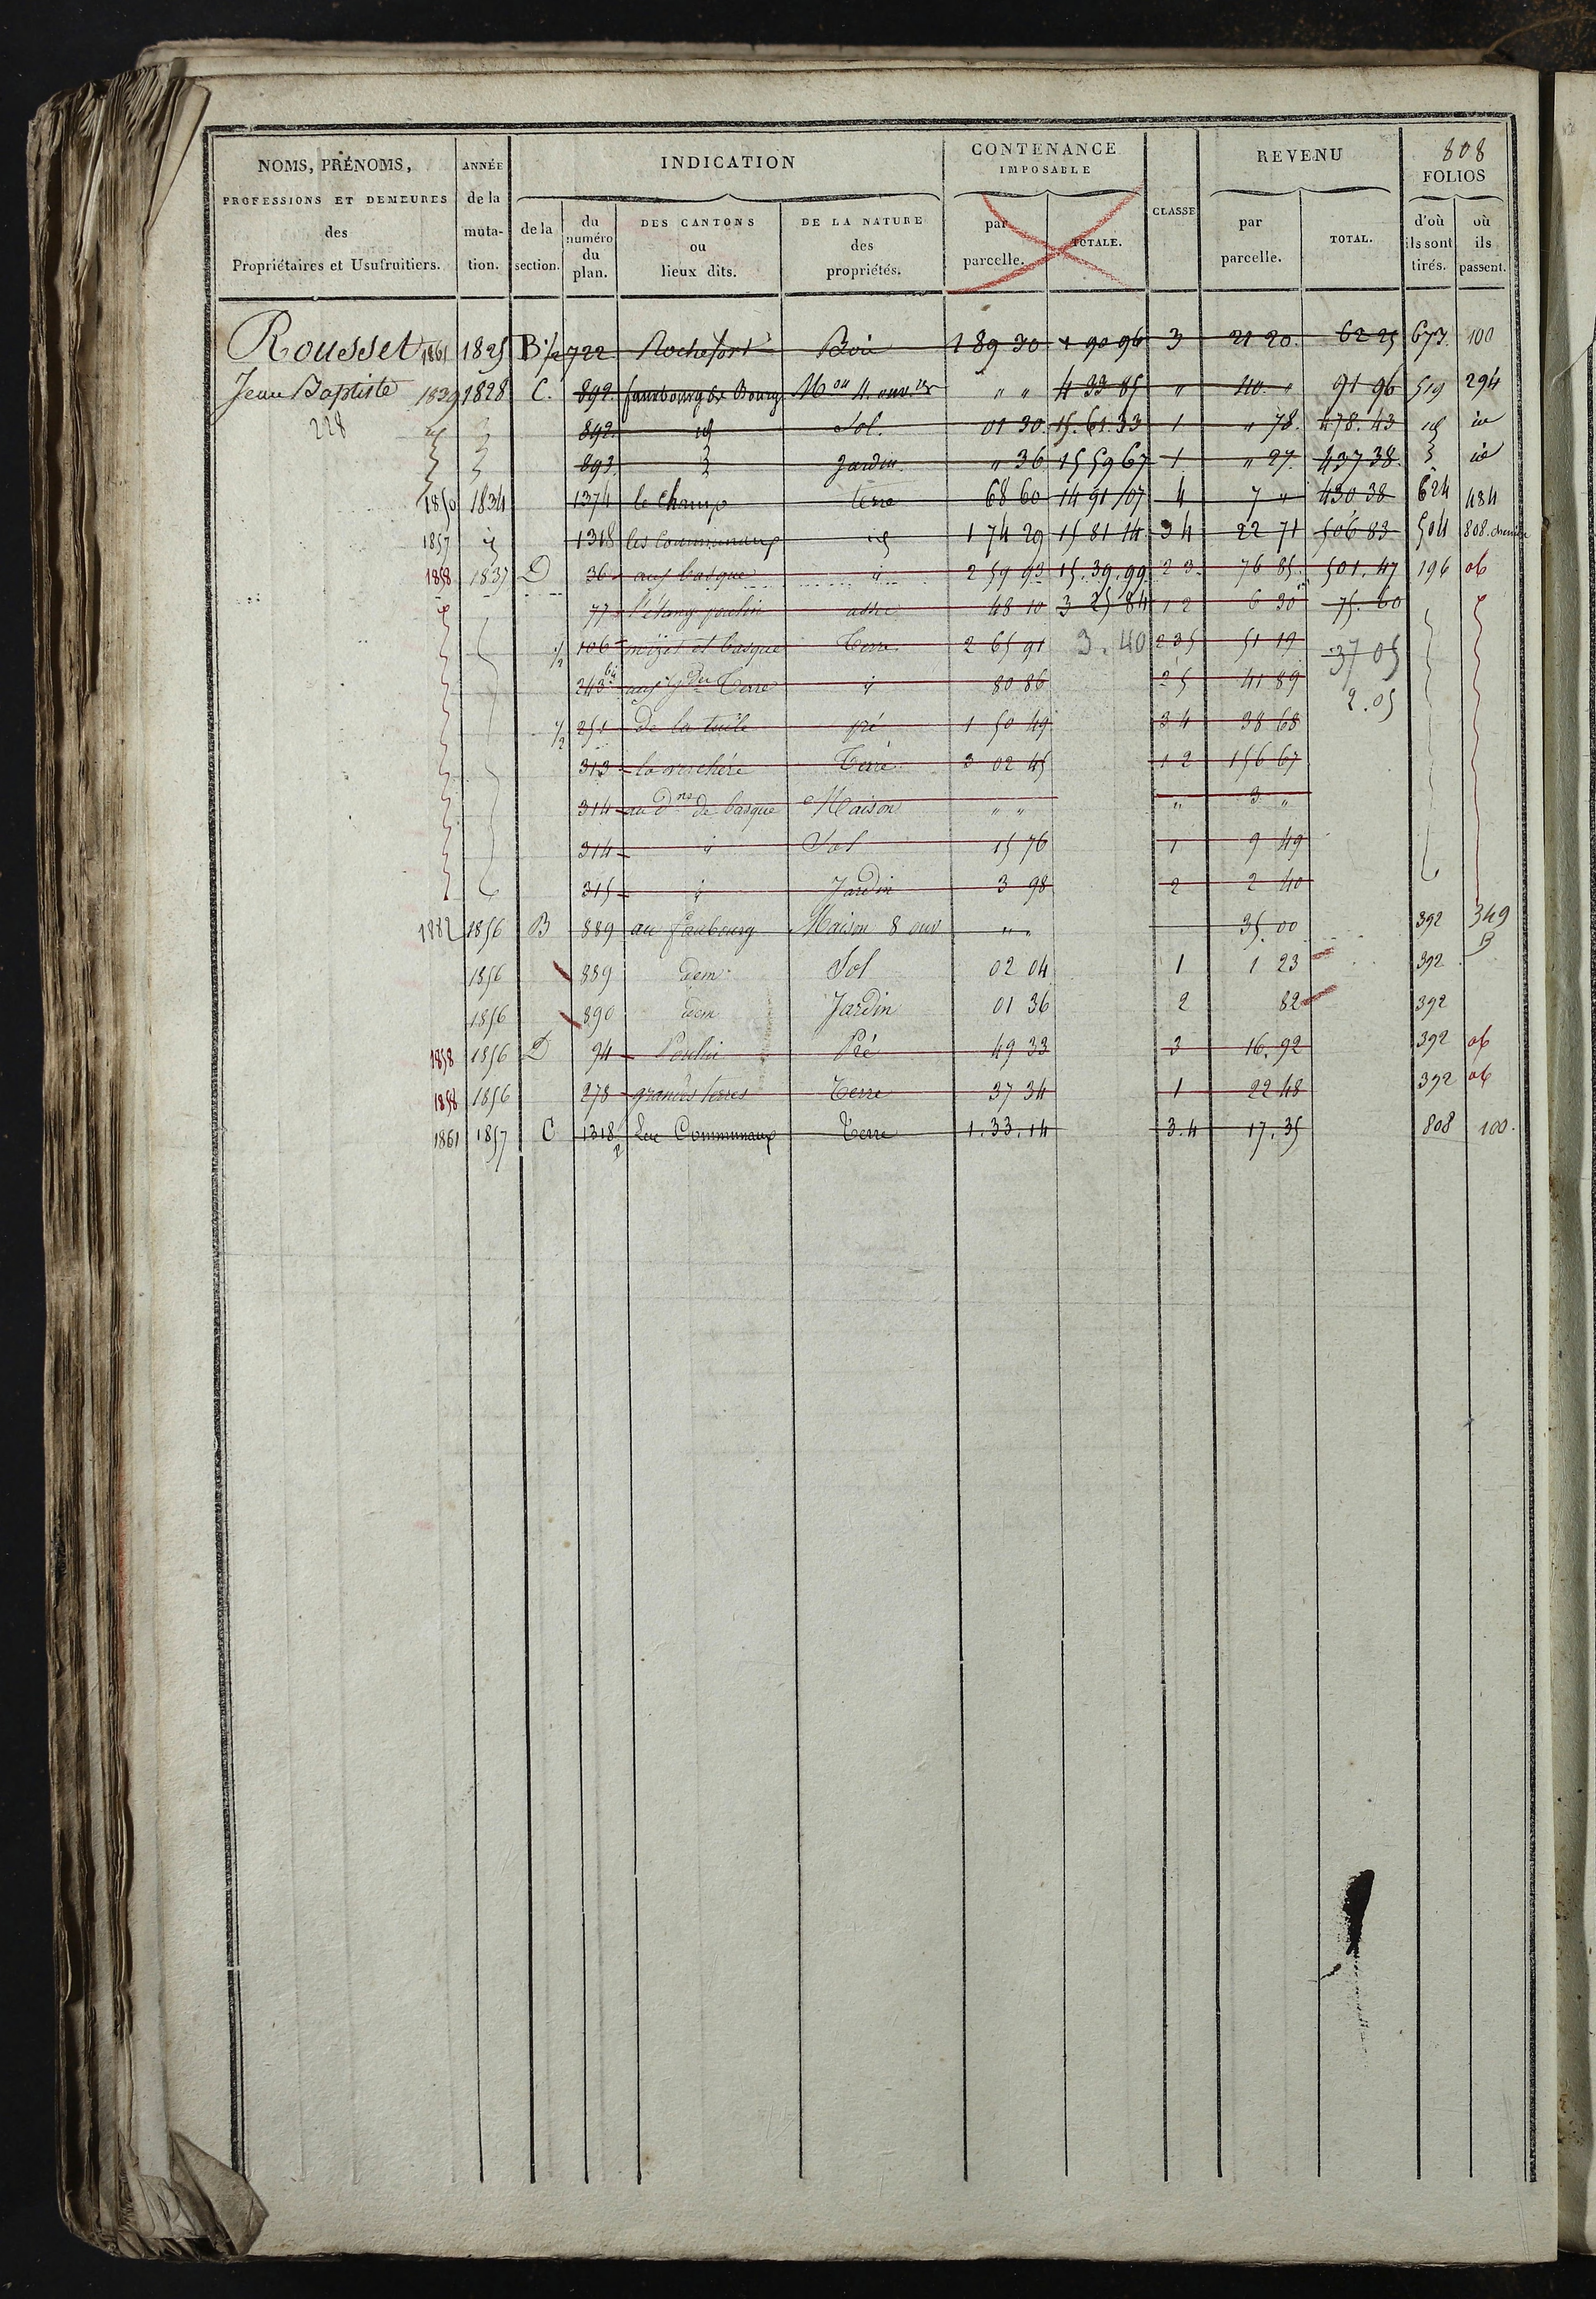 808
NOMS, PRÉNOMS, ANNÉE INDICATION CONTENANCE IMPOSABLE CLASSE REVENU FOLIOS
PROFESSIONS ET DEMEURES de la
des muta-
Propriétaires et Usufruitiers. tion.
de la section. du numéro du plan. DES CANTONS ou lieux dits. DE LA NATURE des propriétés. par parcelle. TOTALE. par parcelle. TOTAL. d'où ils sont tirés. où ils passent.
Rousset 1861 1825 B 1/2 722 Rochefort Bois 1 89 30 1 90 96 3 21 20 62 25 673 100
Jean Baptiste 1839 1828 C. 892 faubourg de Bourg Mon 4 ouvres " " 4 33 85 " 40 " 91 96 519 294
228 892 id Sol. 01 30 15.61.33 1 " 78. 478.43 id id
893 Jardin " 36 15 59 67 1 " 27 437 38 id
1850 1834 1374 le champ terre 68 60 14 91 07 4 7 " 430 38 624 484
1857 id 1318 les communaux id 1 74 29 15 81 14 3 4 22 71 506 83 504 808. chemin
1858 1837 D 36 aux basque id 2 59 93 15.39.99 2 3 76 85 501.47 196 ob
77 l'étang poulin 48 10 3 25 84 1 2 6 30 75.60
1/2 106 et basque Terre 2 65 91 3.40 2 3 5 51 19 37 05
243 bis aux gdes Terre id 80 86 2 5 41 89 2.05
1/2 251 De la tuile pré 1 50 49 3 4 38 68
313 la verchère Terre 3 02 45 1 2 156 67
314 au dne de basque Maison " " " 3 "
314 id Sol 15 76 1 9 49
315 id Jardin 3 98 2 2 40
1882 1856 B 889 au faubourg Maison 8 ouv " " 35.00 392 349 B
1856 889 idem Sol 02 04 1 1 23 392
1856 890 idem Jardin 01 36 2 82 392
1858 1856 D 94 Poulin Pré 49 33 3 16.92 392 ob
1858 1856 278 grandes terres Terre 37 34 1 22 48 392 ob
1861 1857 C 1318 2 Les Communaux Terre 1.33.14 3.4 17.35 808 100.